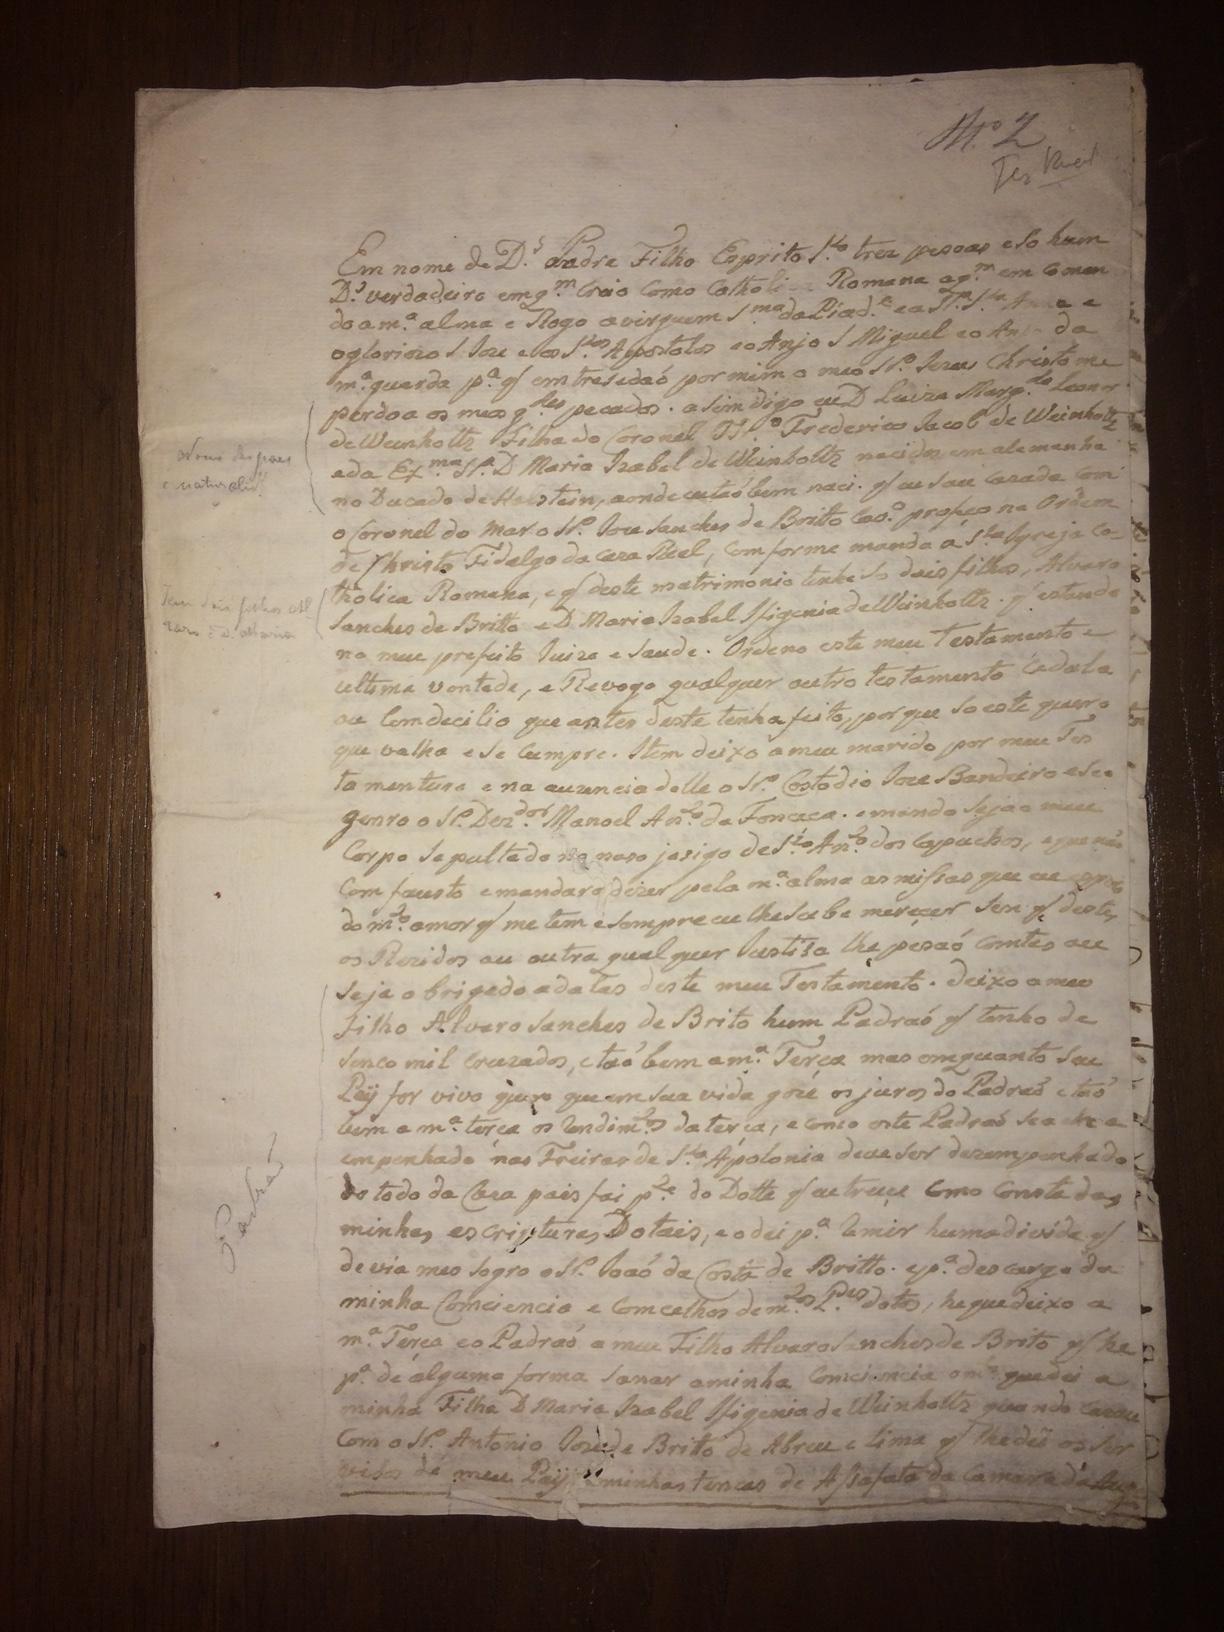 Nº 2
Em nome de D.s Padre Filho Esprito S.to tres pesoas e so hum
D.s verdadeiro em q.m Creio Como Catholi Romana a q.m em Comen
do a m.ª alma e Rogo a virguem S.ma da Piad.e e a Sr.ª S.ta Anna e
o gloriozo S Joze e aos S.tos Apostolos e o Anjo S Miguel e o Anjo da
m.ª guarda p.ª q̃ emtresedaõ por mim a meo Sr.º Jezus Christo me
perdoa os meos g.des pecados. asim digo eu D Luiza Marg.da Leonor
de Weinholtz Filha do Coronel Frederico Jacob de Weinholtz
e da Ex.ma Sr.ª D Maria Izabel de Weinholtz nacidos em alemanha
no Ducado de Holstein, aonde eu taõ bem naci. q̃ eu sou cazada com
o Coronel do mar o Sr.º Joze Sanches de Britto Cav.º profeço na Ordem
de Christo Fidalgo da Caza Real, comforme manda a S.ta Igreja Ca
tholica Romana, e q̃ deste matrimonio tenho so dois filhos, Alvaro
Sanches de Britto e D Maria Izabel Ifigenia de Weinholtz. q̃ estando
no meu prefeito Juizo e Saude. Ordeno este meu Testamento e
ultima vontade, e Revogo qualquer outro testamento Cedula
ou Comdecilio que antes deste tenha feito, por que so este quero
que valha e se Cumpre. Item deixo a meu marido por meu Tes
tamenturo e na auzencia delle o Sr.º Costodio Joze Bandeira e seo
genro o Sr. Dez.dor Manoel An.to da Fonceca. e mando seja o meu
Corpo Sepultado no noso jasigo de S.to An.to dos Capuchos, e que não
Com fausto e mandara dizer pela m.ª alma as missas que eu espero
do m.to amor q̃ me tem e sempre eu lhe soube merecer sem q̃ deste,
os Rezidos ou outra qual quer Justisa lhe pesaõ Comtas ou
seja obrigado a da las deste meu Testamento. deixo a meo
Filho Alvaro Sanches de Brito hum Padraõ q̃ tenho de
sinco mil Cruzados, e taõ bem a m.ª Terça mas emquanto seu
Pay for vivo quero que em sua vida goze os juros do Padraõ e taõ
bem a m.ª terça os Rendim.tos da terça, e como este Padraõ se acha
empenhado nas Freiras de S.ta Apolonia deve ser dezempenhado
do todo da Caza pois foi p.te do Dotte q̃ eu trouxe Como Consta das
minhas escripturas Dotais, e o dei p.ª Remir huma divida q̃
devia meo Sogro o Sr. Joaõ da Costa de Britto. e p.ª descargo da
minha Comciencia e Comcelhos de m.tos P.es dotos, he que deixo a
m.ª Terça e o Padraõ a meu Filho Alvaro Sanches de Brito q̃ he
p.ª de alguma forma Sanar a minha Comciencia o m.to que dei a
minha Filha D Maria Izabel Ifigenia de Weinholtz quando Cazou
Com o Sr. Antonio Joze de Brito de Abreu e Lima q̃ lhe dei os Ser
visos de meu Pay e minhas tencas de Assafata da Camara da
Nome dos paes
e naturalid.e
Tem dois filhos Al
varo e D. Maria
Padraõ